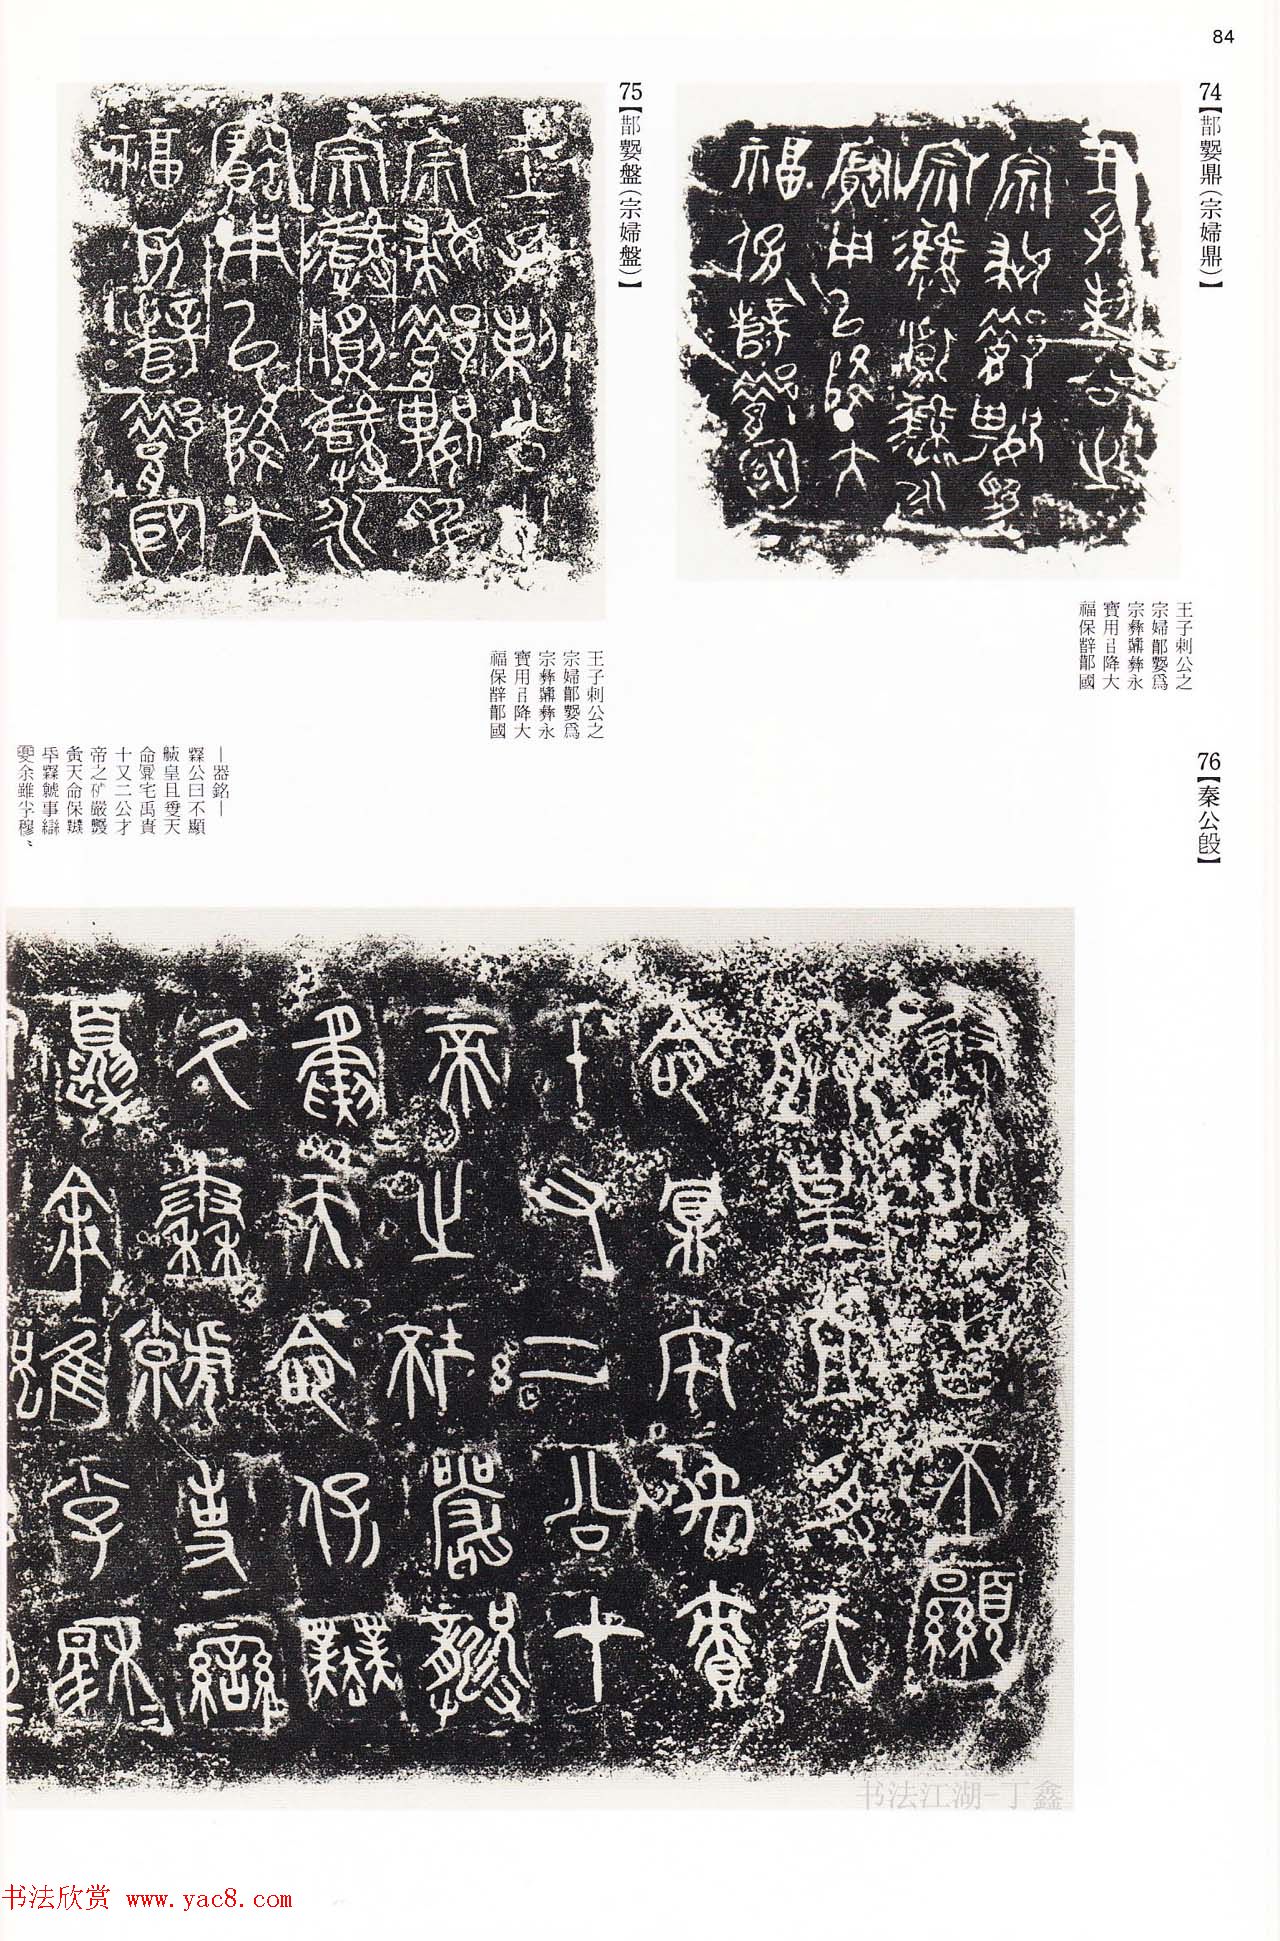 84
74【鄁嫛鼎(宗婦鼎)】
王子剌公之
宗婦鄁嫛爲
宗彝𩰬彝永
寶用㠯降大
福保辥鄁國
75【鄁嫛盤(宗婦盤)】
王子剌公之
宗婦鄁嫛爲
宗彝𩰬彝永
寶用㠯降大
福保辥鄁國
76【秦公𣪘】
—器銘—
公曰不顯
皇且受天
命鼏宅禹責
十又二公才
帝之 嚴
天命保
事
余雖小子穆〻
书法江湖-丁鑫
书法欣赏 www.yac8.com